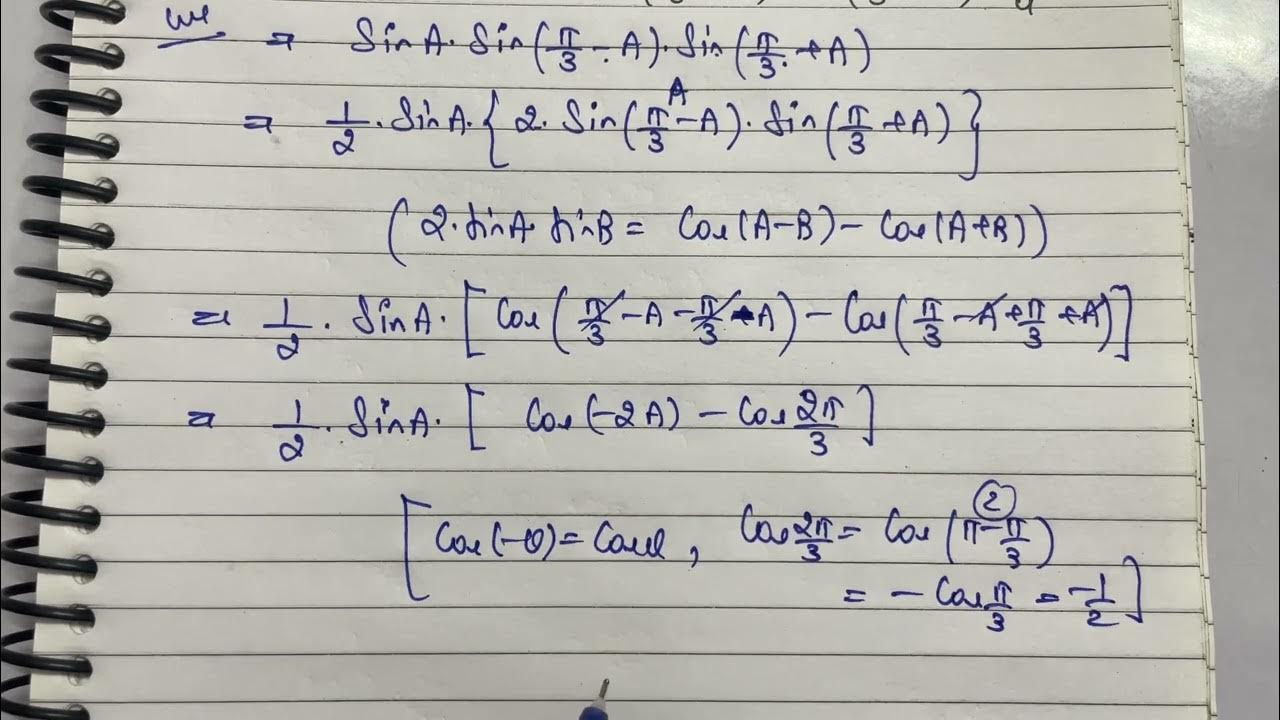 LHS ⇒ Sin A · Sin(π/3 - A) · Sin(π/3 + A)
⇒ 1/2 · Sin A · { 2 · Sin(π/3 - A) · Sin(π/3 + A) }
A
( 2 · sin A · sin B = Cos(A - B) - Cos(A + B) )
= 1/2 · Sin A · [ Cos(π/3 - A - π/3 - A) - Cos(π/3 - A + π/3 + A) ]
= 1/2 · Sin A · [ Cos(-2A) - Cos 2π/3 ]
[ Cos(-θ) = Cosθ , Cos 2π/3 = Cos(π - π/3)
②
= - Cos π/3 = -1/2 ]